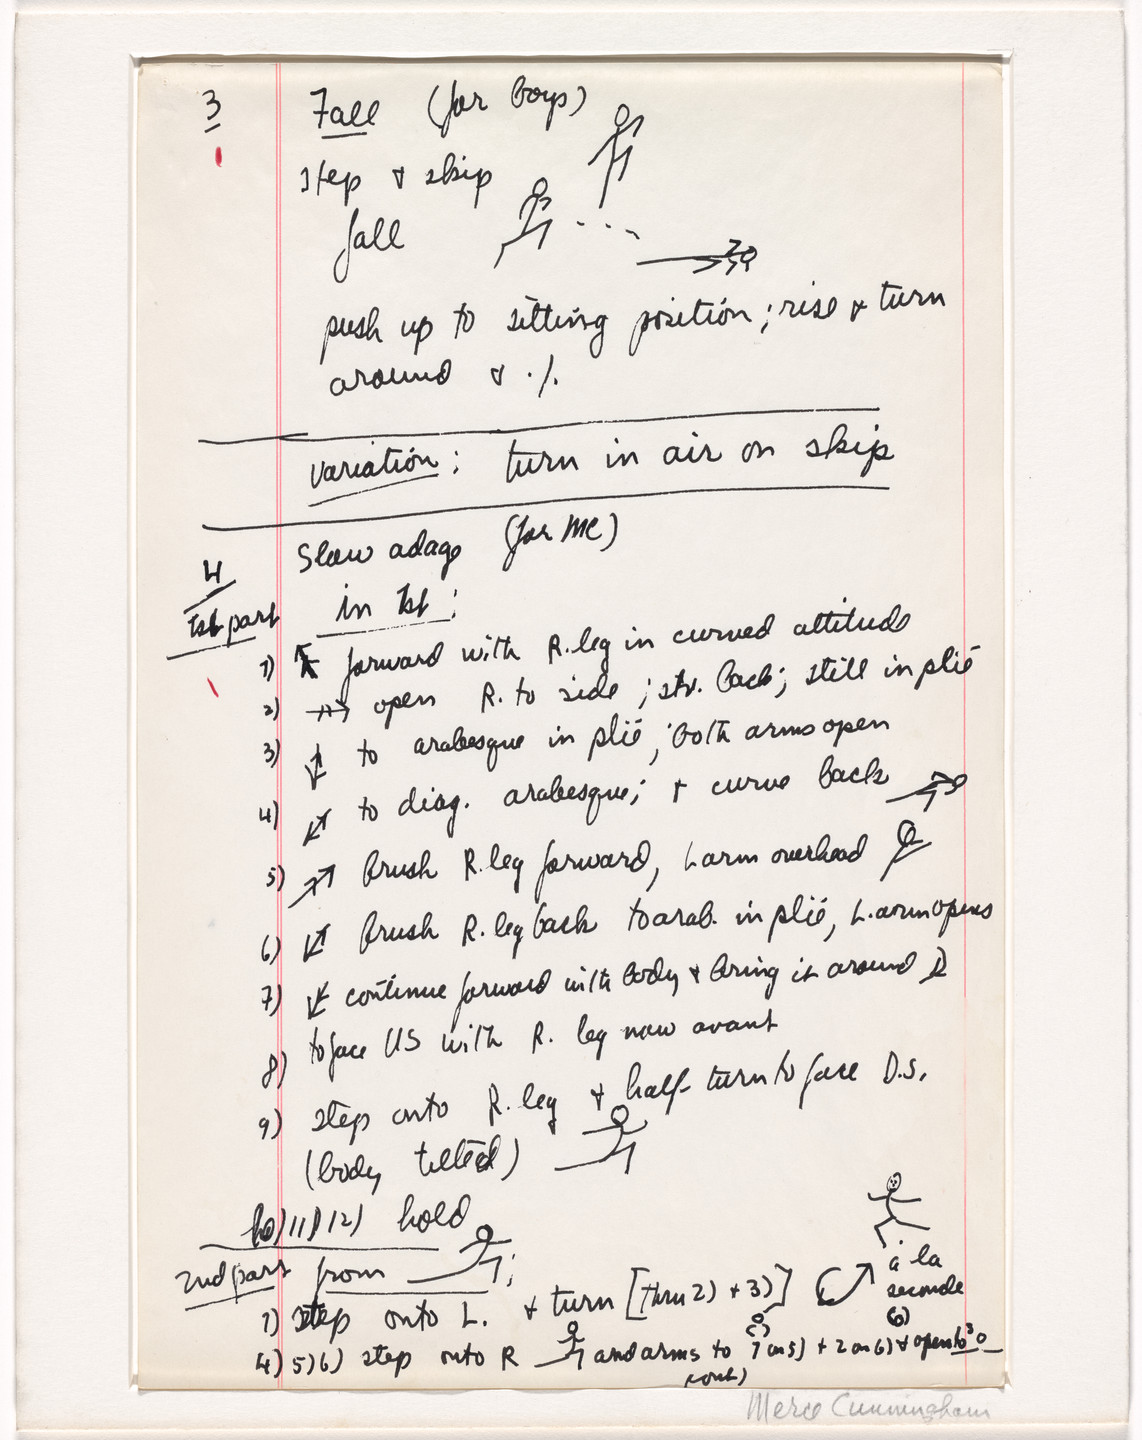 3 Fall (for boys)
step & skip
fall
push up to sitting position; rise & turn
around & ·/.
variation: turn in air on skip
4 Slow adage (for MC)
1st part in 1st:
1) forward with R. leg in curved attitude
2) open R. to side; str. back; still in plié
3) to arabesque in plié; both arms open
4) to diag. arabesque; & curve back
5) brush R. leg forward, L arm overhead
6) brush R. leg back to arab. in plié, L. arm opens
7) continue forward with body & bring it around
8) to face US with R. leg now avant
9) step onto R. leg & half-turn to face D.S.
(body tilted)
10) 11) 12) hold
2nd part from ;
à la
seconde
(6)
1) step onto L. & turn [thru 2) + 3)]
4) 5) 6) step onto R and arms to 1 (on 5) + 2 on 6) & open to 3
(cont)
Merce Cunningham